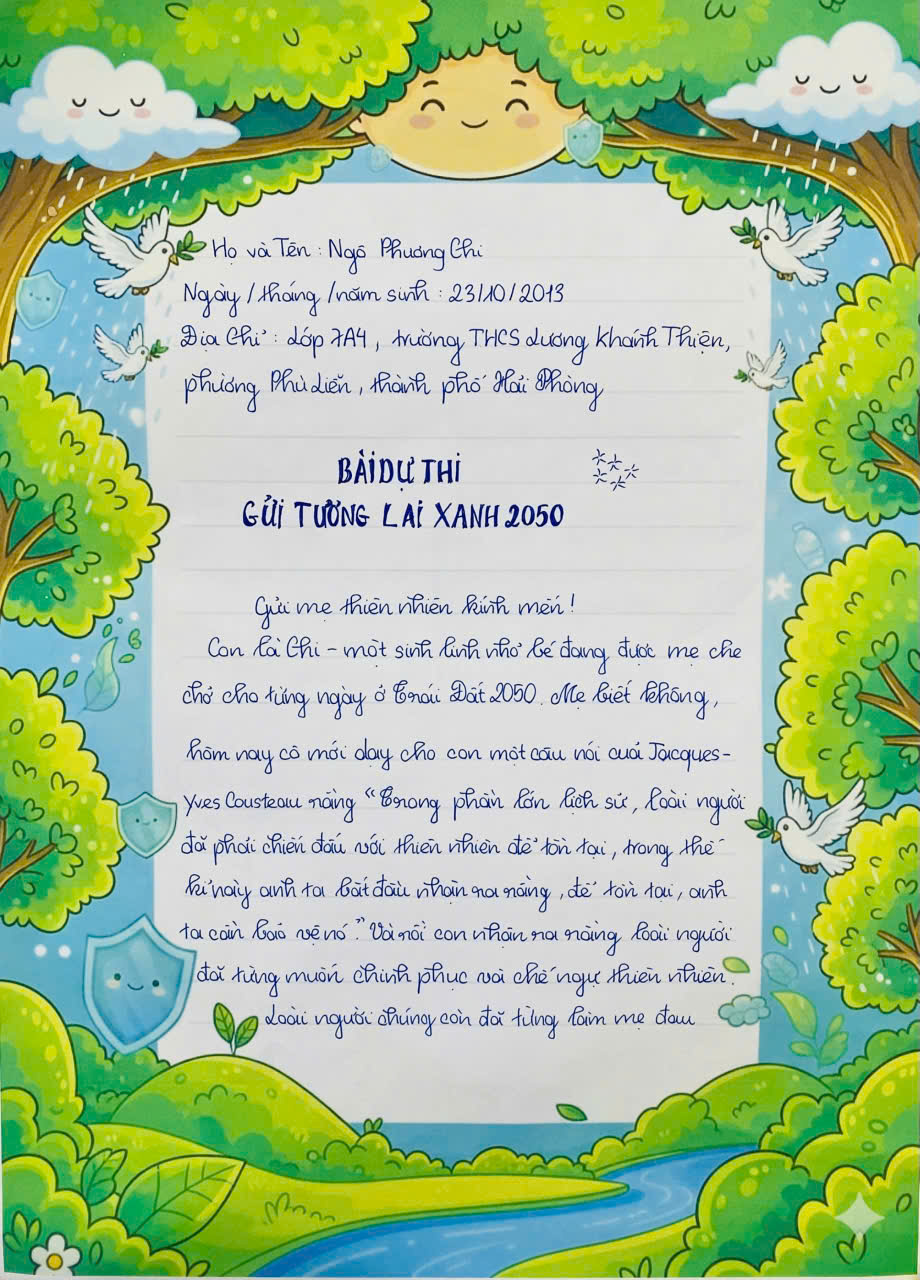 Họ và Tên : Ngô Phương Chi
Ngày / tháng / năm sinh : 23/10/2013
Địa Chỉ : Lớp 7A4, trường THCS Lương Khánh Thiện,
phường Phù Liễn, thành phố Hải Phòng
BÀI DỰ THI
GỬI TƯƠNG LAI XANH 2050
Gửi mẹ thiên nhiên kính mến !
Con là Chi – một sinh linh nhỏ bé đang được mẹ che
chở cho từng ngày ở Trái Đất 2050. Mẹ biết không,
hôm nay cô mới dạy cho con một câu nói của Jacques-
Yves Cousteau rằng "Trong phần lớn lịch sử, loài người
đã phải chiến đấu với thiên nhiên để tồn tại, trong thế
kỉ này anh ta bắt đầu nhận ra rằng, để tồn tại, anh
ta cần bảo vệ nó." Và rồi con nhận ra rằng loài người
đã từng muốn chinh phục và chế ngự thiên nhiên.
Loài người chúng con đã từng làm mẹ đau